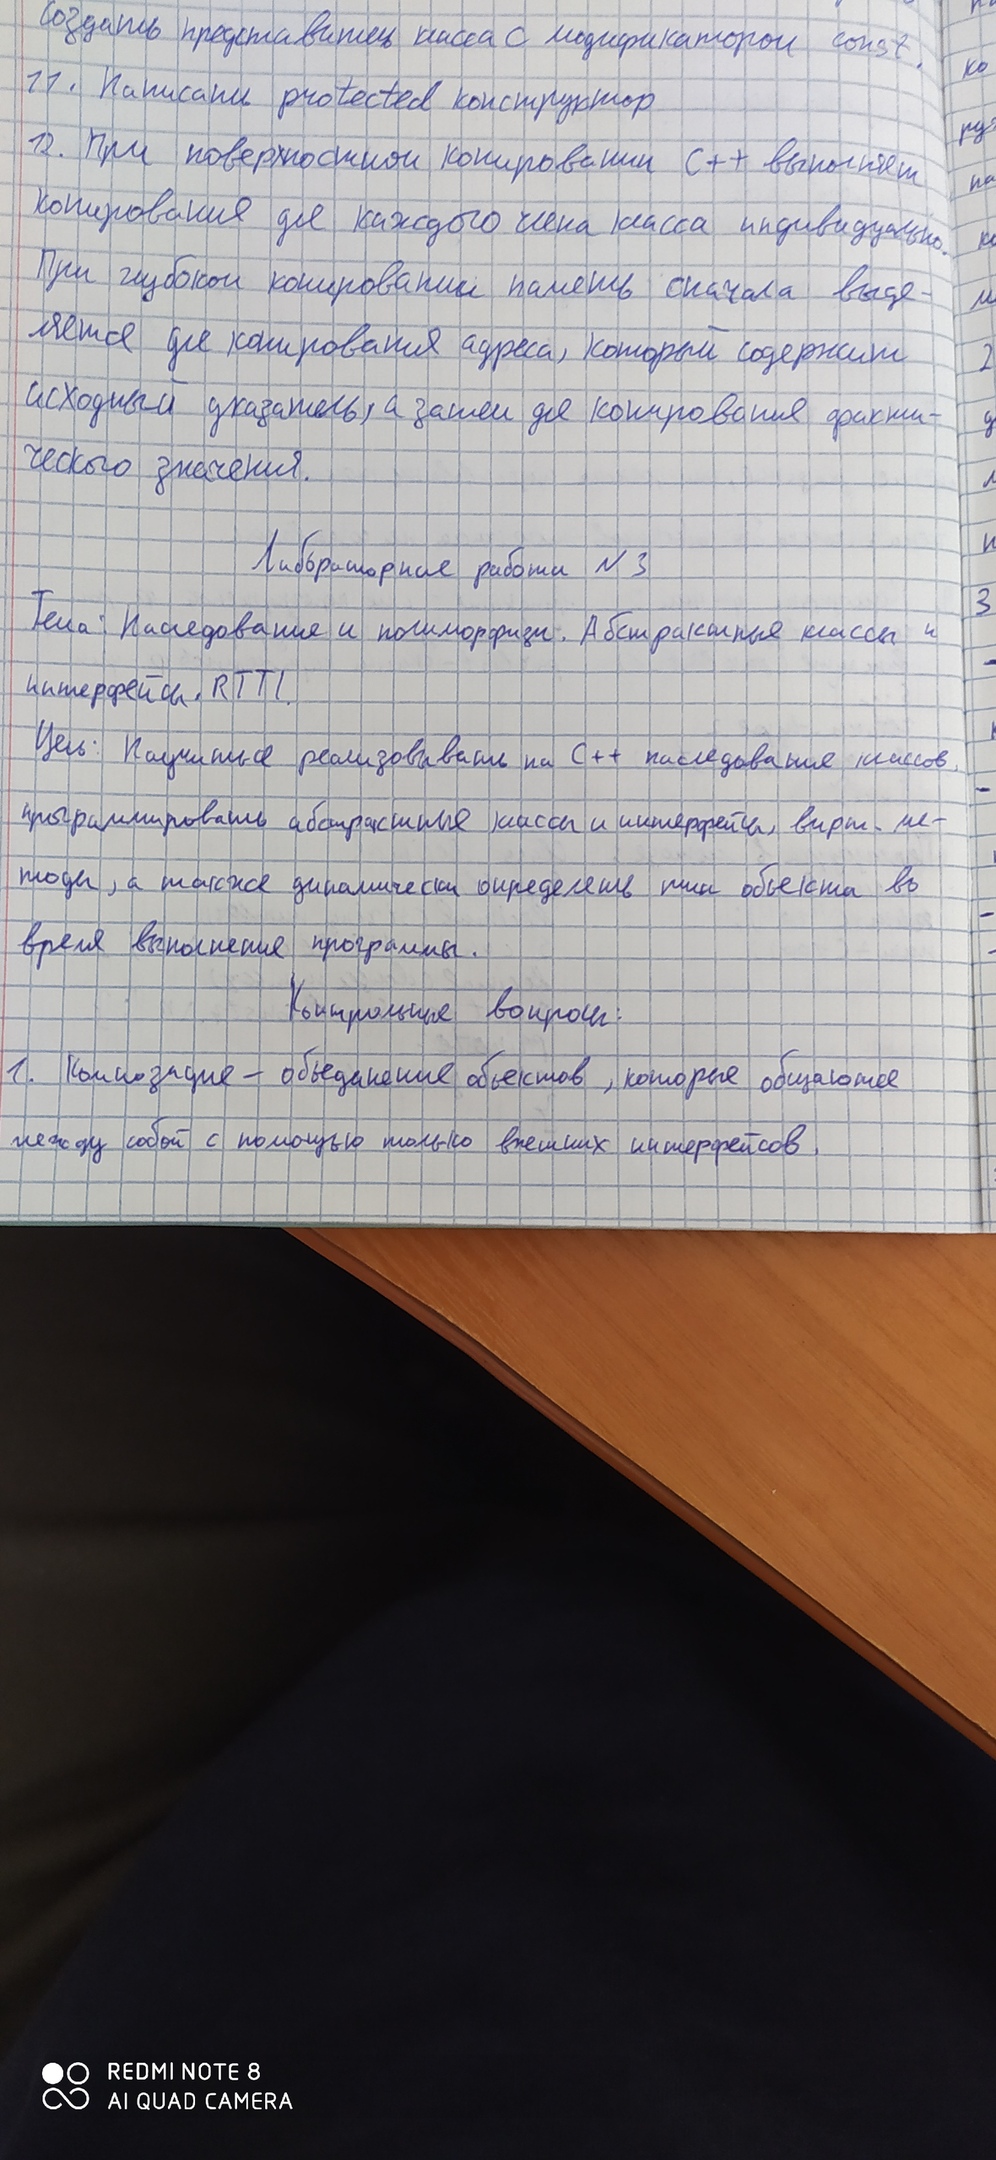 Создать представитель класса с модификатором const.
11. Написать protected конструктор
12. При поверхностном копировании C++ выполняет
копирование для каждого члена класса индивидуально.
При глубоком копировании память сначала выде-
ляется для копирования адреса, который содержит
исходный указатель, а затем для копирования факти-
ческого значения.
Лабораторная работа N3
Тема: Наследование и полиморфизм. Абстрактные классы и
интерфейсы. RTTI.
Цель: Научиться реализовывать на C++ наследование классов,
программировать абстрактные классы и интерфейсы, вирт. ме-
тоды, а также динамически определять тип объекта во
время выполнения программы.
Контрольные вопросы:
1. Композиция – объединение объектов, которые общаются
между собой с помощью только внешних интерфейсов.
REDMI NOTE 8
AI QUAD CAMERA